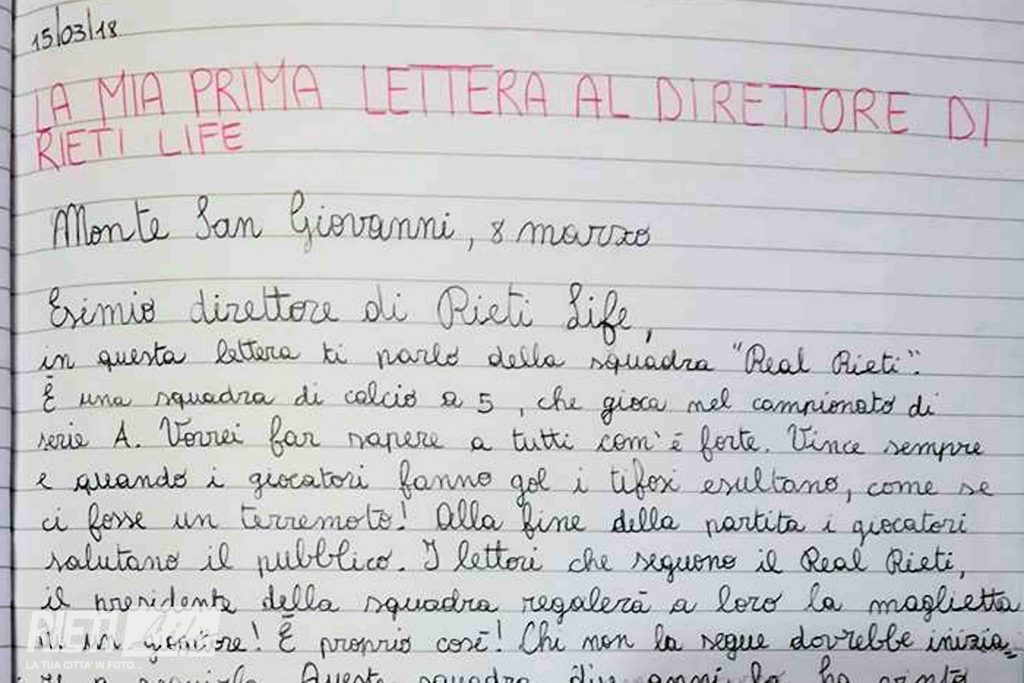 15/03/18
LA MIA PRIMA LETTERA AL DIRETTORE DI
RIETI LIFE
Monte San Giovanni, 8 marzo
Esimio direttore di Rieti Life,
in questa lettera ti parlo della squadra "Real Rieti".
È una squadra di calcio a 5, che gioca nel campionato di
serie A. Vorrei far sapere a tutti com'è forte. Vince sempre
e quando i giocatori fanno gol i tifosi esultano, come se
ci fosse un terremoto! Alla fine della partita i giocatori
salutano il pubblico. I lettori che seguono il Real Rieti,
il presidente della squadra regalerà a loro la maglietta
di un giocatore! È proprio così! Chi non la segue dovrebbe inizia=
re a seguirla. Questa squadra due anni fa ha vinto
RIETI LIFE
LA TUA CITTA' IN FOTO...